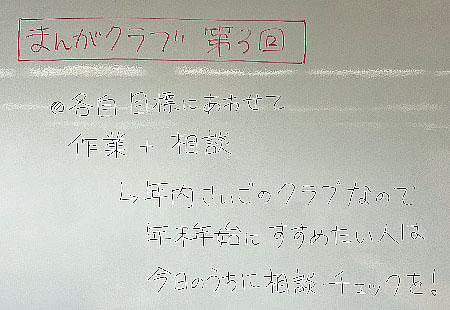 まんがクラブ 第3回
◎各自 目標にあわせて
作業 + 相談
↳年内さいごのクラブなので
年末年始に すすめたい人は
今日のうちに相談・チェックを!